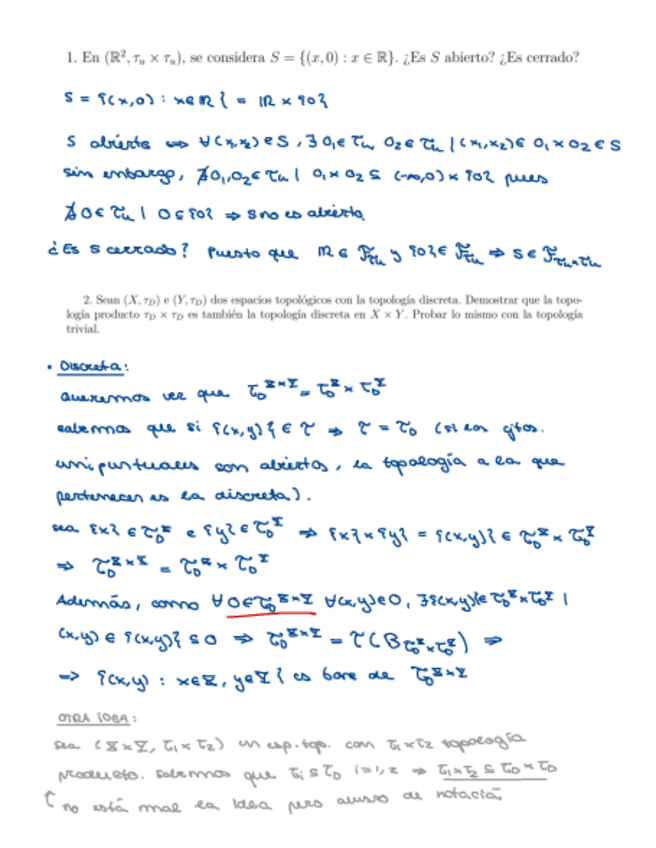 1. En (ℝ², τ_u × τ_u), se considera S = {(x, 0) : x ∈ ℝ}. ¿Es S abierto? ¿Es cerrado?
S = {(x,0) : x∈ℝ} = ℝ × {0}
S abierto ⟺ ∀(x₁,x₂)∈S, ∃ O₁∈τ_u, O₂∈τ_u | (x₁,x₂)∈ O₁×O₂ ⊆ S
sin embargo, ∄O₁,O₂∈τ_u | O₁×O₂ ⊆ (-∞,0)×{0} pues
∄O∈τ_u | O⊆{0} ⇒ S no es abierto.
¿Es S cerrado? Puesto que ℝ∈ F_τu y {0}∈ F_τu ⇒ S∈ F_τu×τu
2. Sean (X, τ_D) e (Y, τ_D) dos espacios topológicos con la topología discreta. Demostrar que la topo-
logía producto τ_D × τ_D es también la topología discreta en X × Y. Probar lo mismo con la topología
trivial.
• Discreta:
Queremos ver que τ_D^X×Y = τ_D^X × τ_D^Y
sabemos que si {(x,y)} ∈ τ ⇒ τ = τ_D (si los cjtos.
unipuntuales son abiertos, la topología a la que
pertenecen es la discreta).
sea {x} ∈ τ_D^X e {y} ∈ τ_D^Y ⇒ {x}×{y} = {(x,y)} ∈ τ_D^X × τ_D^Y
⇒ τ_D^X×Y = τ_D^X × τ_D^Y
Además, como ∀O∈τ_D^X×Y ∀(x,y)∈O, ∃{(x,y)}∈τ_D^X×τ_D^Y |
(x,y) ∈ {(x,y)} ⊆ O ⇒ τ_D^X×Y = τ(B_τ_D^X×τ_D^Y) ⇒
⇒ {(x,y) : x∈X, y∈Y} es base de τ_D^X×Y
OTRA IDEA:
sea (X×Y, τ₁×τ₂) un esp. top. con τ₁×τ₂ topología
producto. sabemos que τᵢ ⊆ τ_D i=1,2 ⇒ τ₁×τ₂ ⊆ τ_D × τ_D
↑ no está mal la idea pero abuso de notación